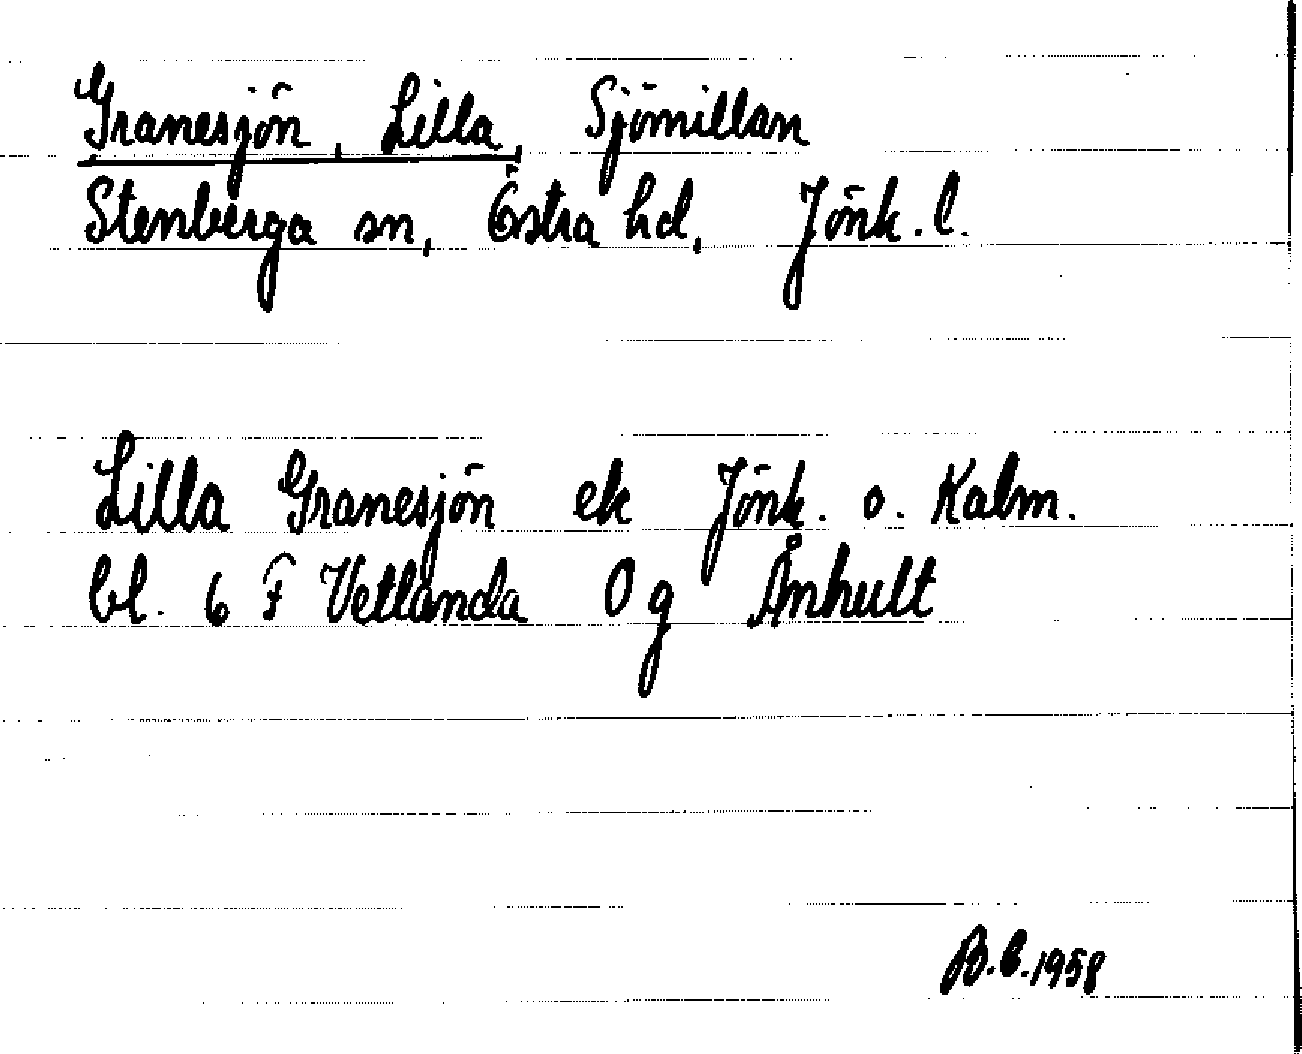 Granesjön, Lilla, Sjömillan
Stenberga sn, Östra hd, Jönk. l.
Lilla Granesjön ek Jönk. o. Kalm.
bl. 6 F Vetlanda 0 g Ånhult
B.E. 1958